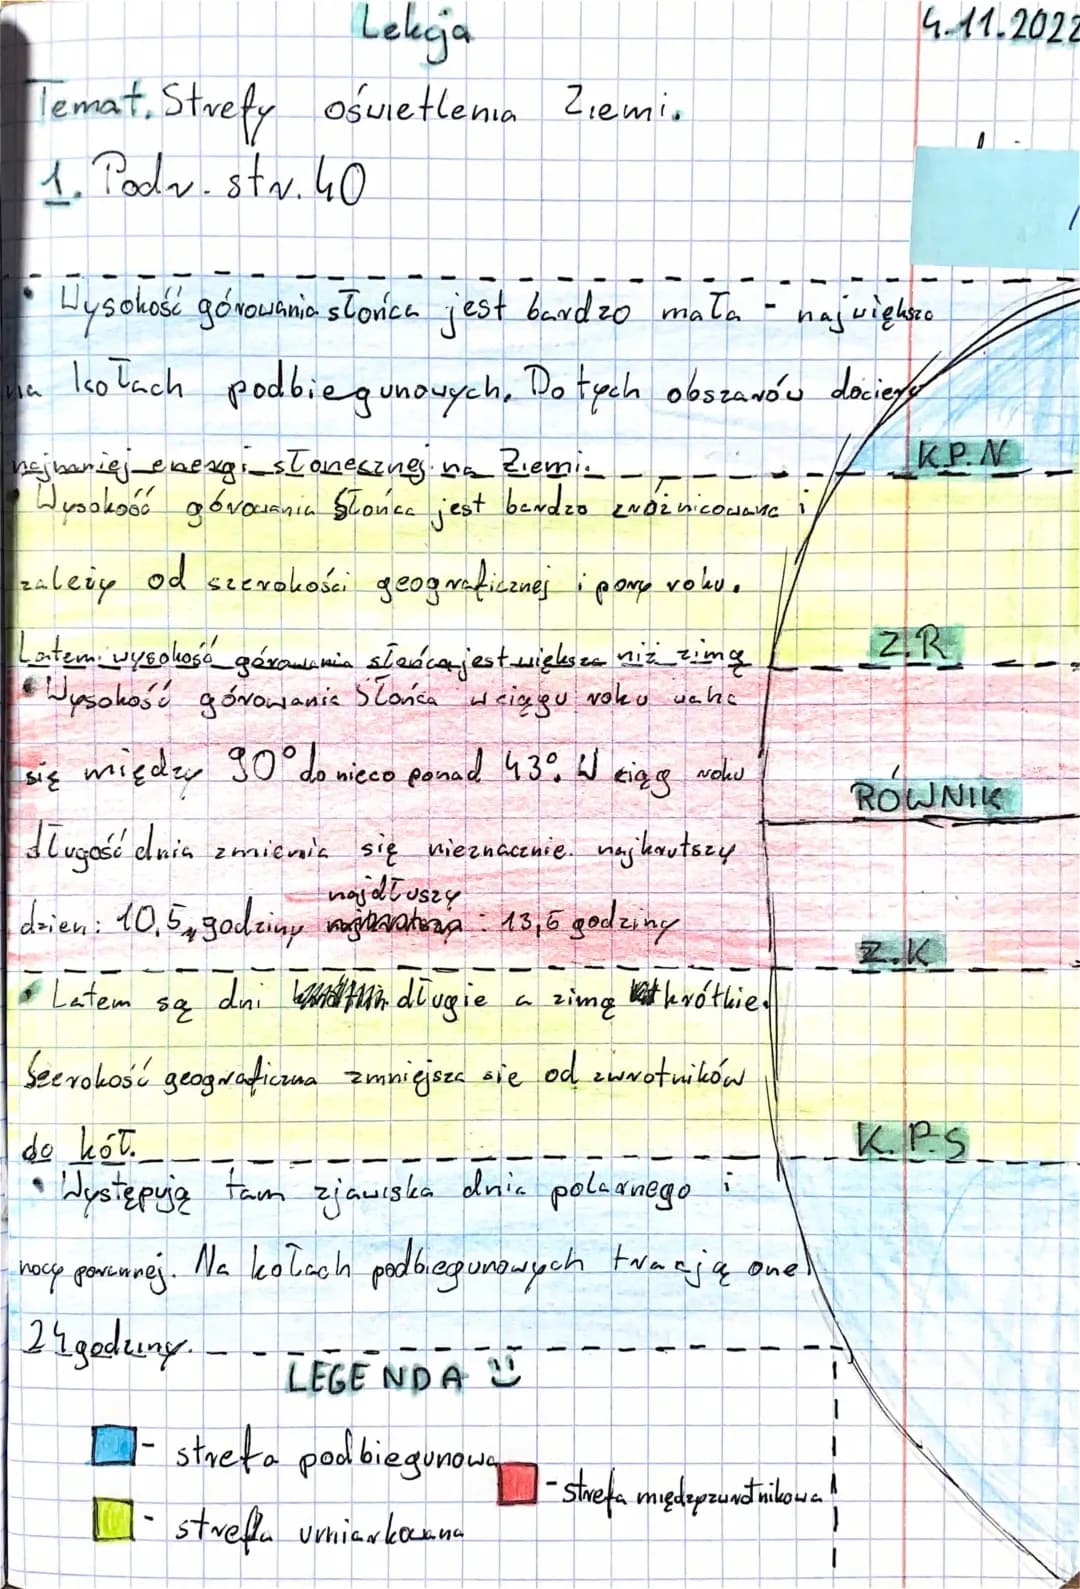 Lekcja 4.11.2022
Temat. Strefy oświetlenia Ziemi.
1. Podr. str. 40
• Wysokość górowania słońca jest bardzo mała - największa
na kołach podbiegunowych. Do tych obszarów dociera
najmniej energi słonecznej na Ziemi.
K.P.N
• Wysokość górowania Słońca jest bardzo zróżnicowana i
zależy od szerokości geograficznej i pory roku.
Latem wysokość górowania słońca jest większa niż zimą
Z.R
• Wysokość górowania Słońca w ciągu roku waha
się między 90° do nieco ponad 43°. W ciąg roku
RÓWNIK
długość dnia zmienia się nieznacznie. najkrutszy
najdłuszy
dzien: 10,5 godziny : 13,5 godziny
Z.K
• Latem są dni długie a zimą krótkie.
Szerokość geograficzna zmniejsza sie od zwrotników
do kół.
K.P.S
• Występują tam zjawiska dnia polarnego i
nocy porannej. Na kołach podbiegunowych trwają one
24 godziny.
LEGENDA
- strefa podbiegunowa
- strefa międzyzwrotnikowa
- strefa umiarkowana